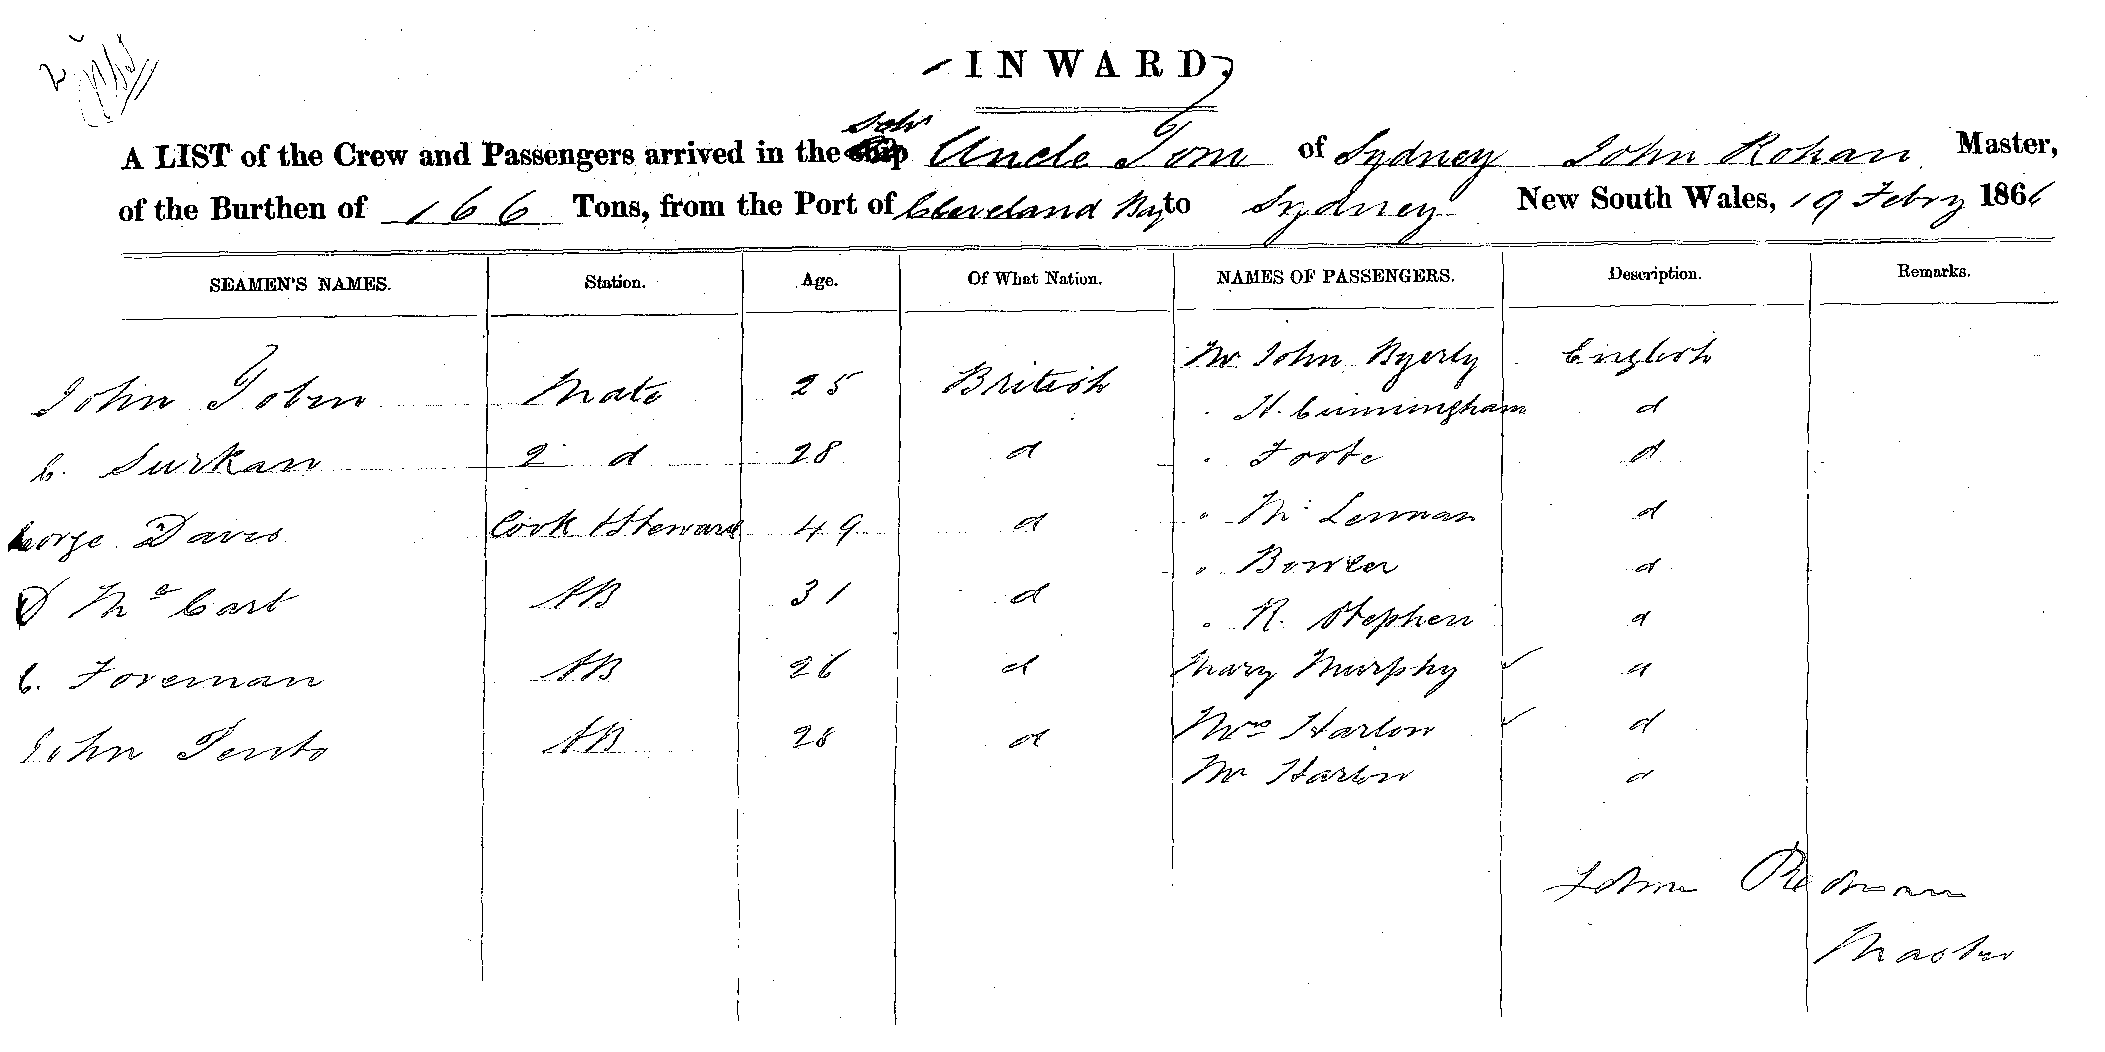 INWARD
Schr
A LIST of the Crew and Passengers arrived in the Uncle Tom of Sydney John Rohan Master,
of the Burthen of 166 Tons, from the Port of Cleveland Bay to Sydney New South Wales, 19 Febry 1866
SEAMEN'S NAMES. Station. Age. Of What Nation. NAMES OF PASSENGERS. Description. Remarks.
Mr John Byerly English
John Tobin Mate 25 British
" H. Cunningham d
C. Surkan 2 d 28 d " Foote d
George Davis Cook & Steward 49 d " Mc Lennan d
" Bowler d
D McCart AB 31 d " R. Stephen d
C. Foreman AB 26 d Mary Murphy d
John Pento AB 28 d Mrs Harlon d
Mr Harlon d
John Rohan
Master